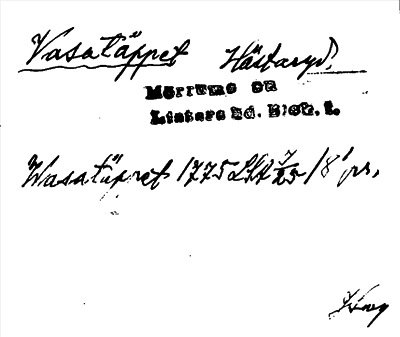 Vasatäppet Hästaryd.
Mörrums sn
Listers hd. Blek. l.
Wasatäpret 1775 LSA 7/25 18' pr.